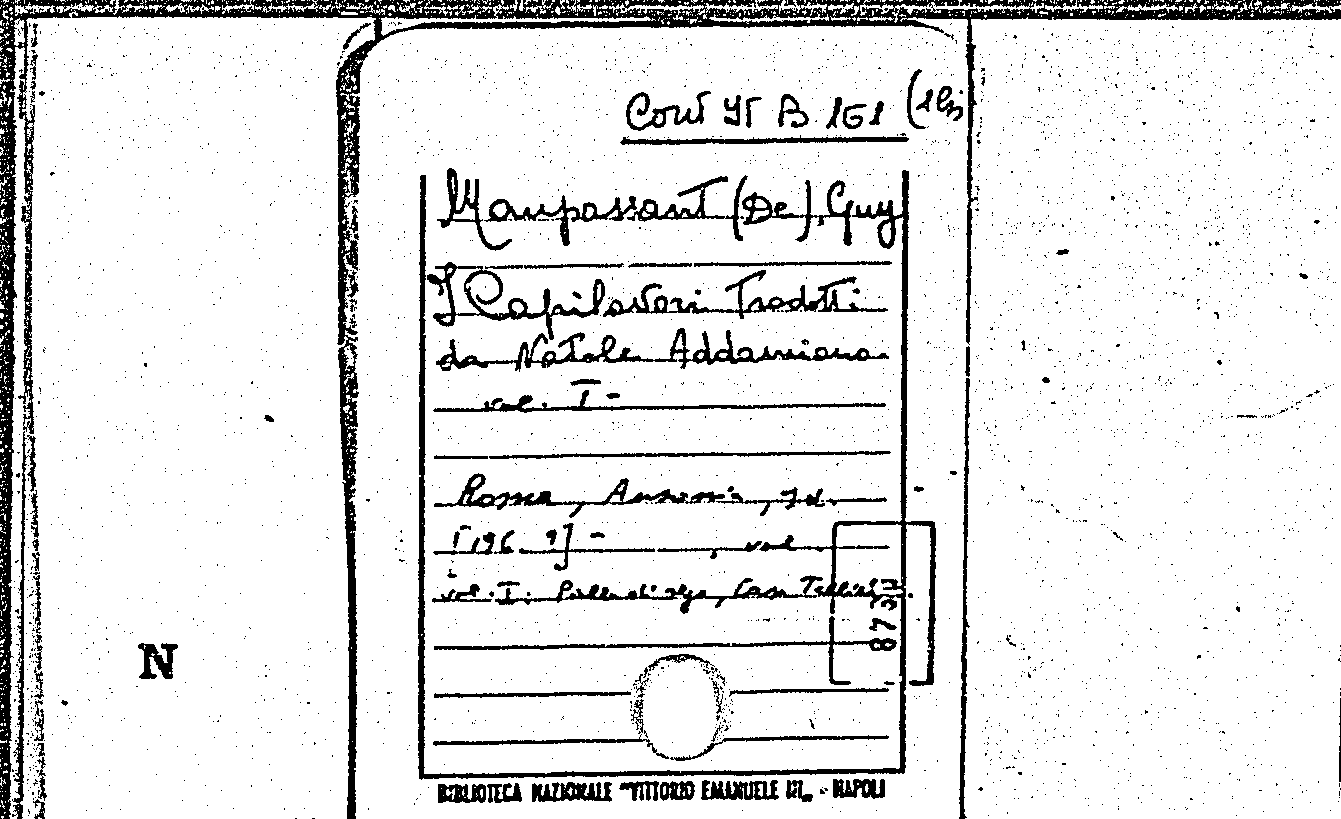 Cont It B 161 (1 bis
Maupassant (De), Guy
I Capilavori Tradotti
da Natale Addamiano
vol. I -
Roma, Ed.
[196. ?] - , vol
vol. I: Palla di sego, Casa Tellier.
873
N
BIBLIOTECA NAZIONALE "VITTORIO EMANUELE III" - NAPOLI